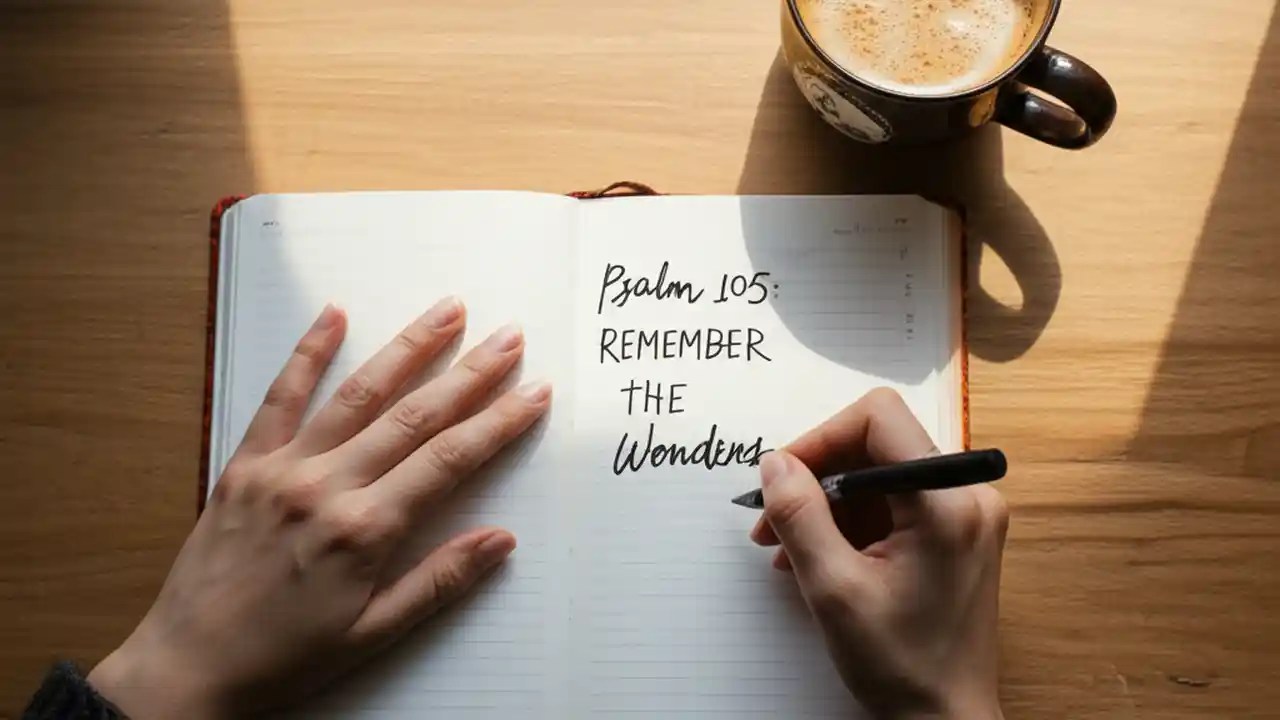 Psalm 105:
REMEMBER
THE
Wonders